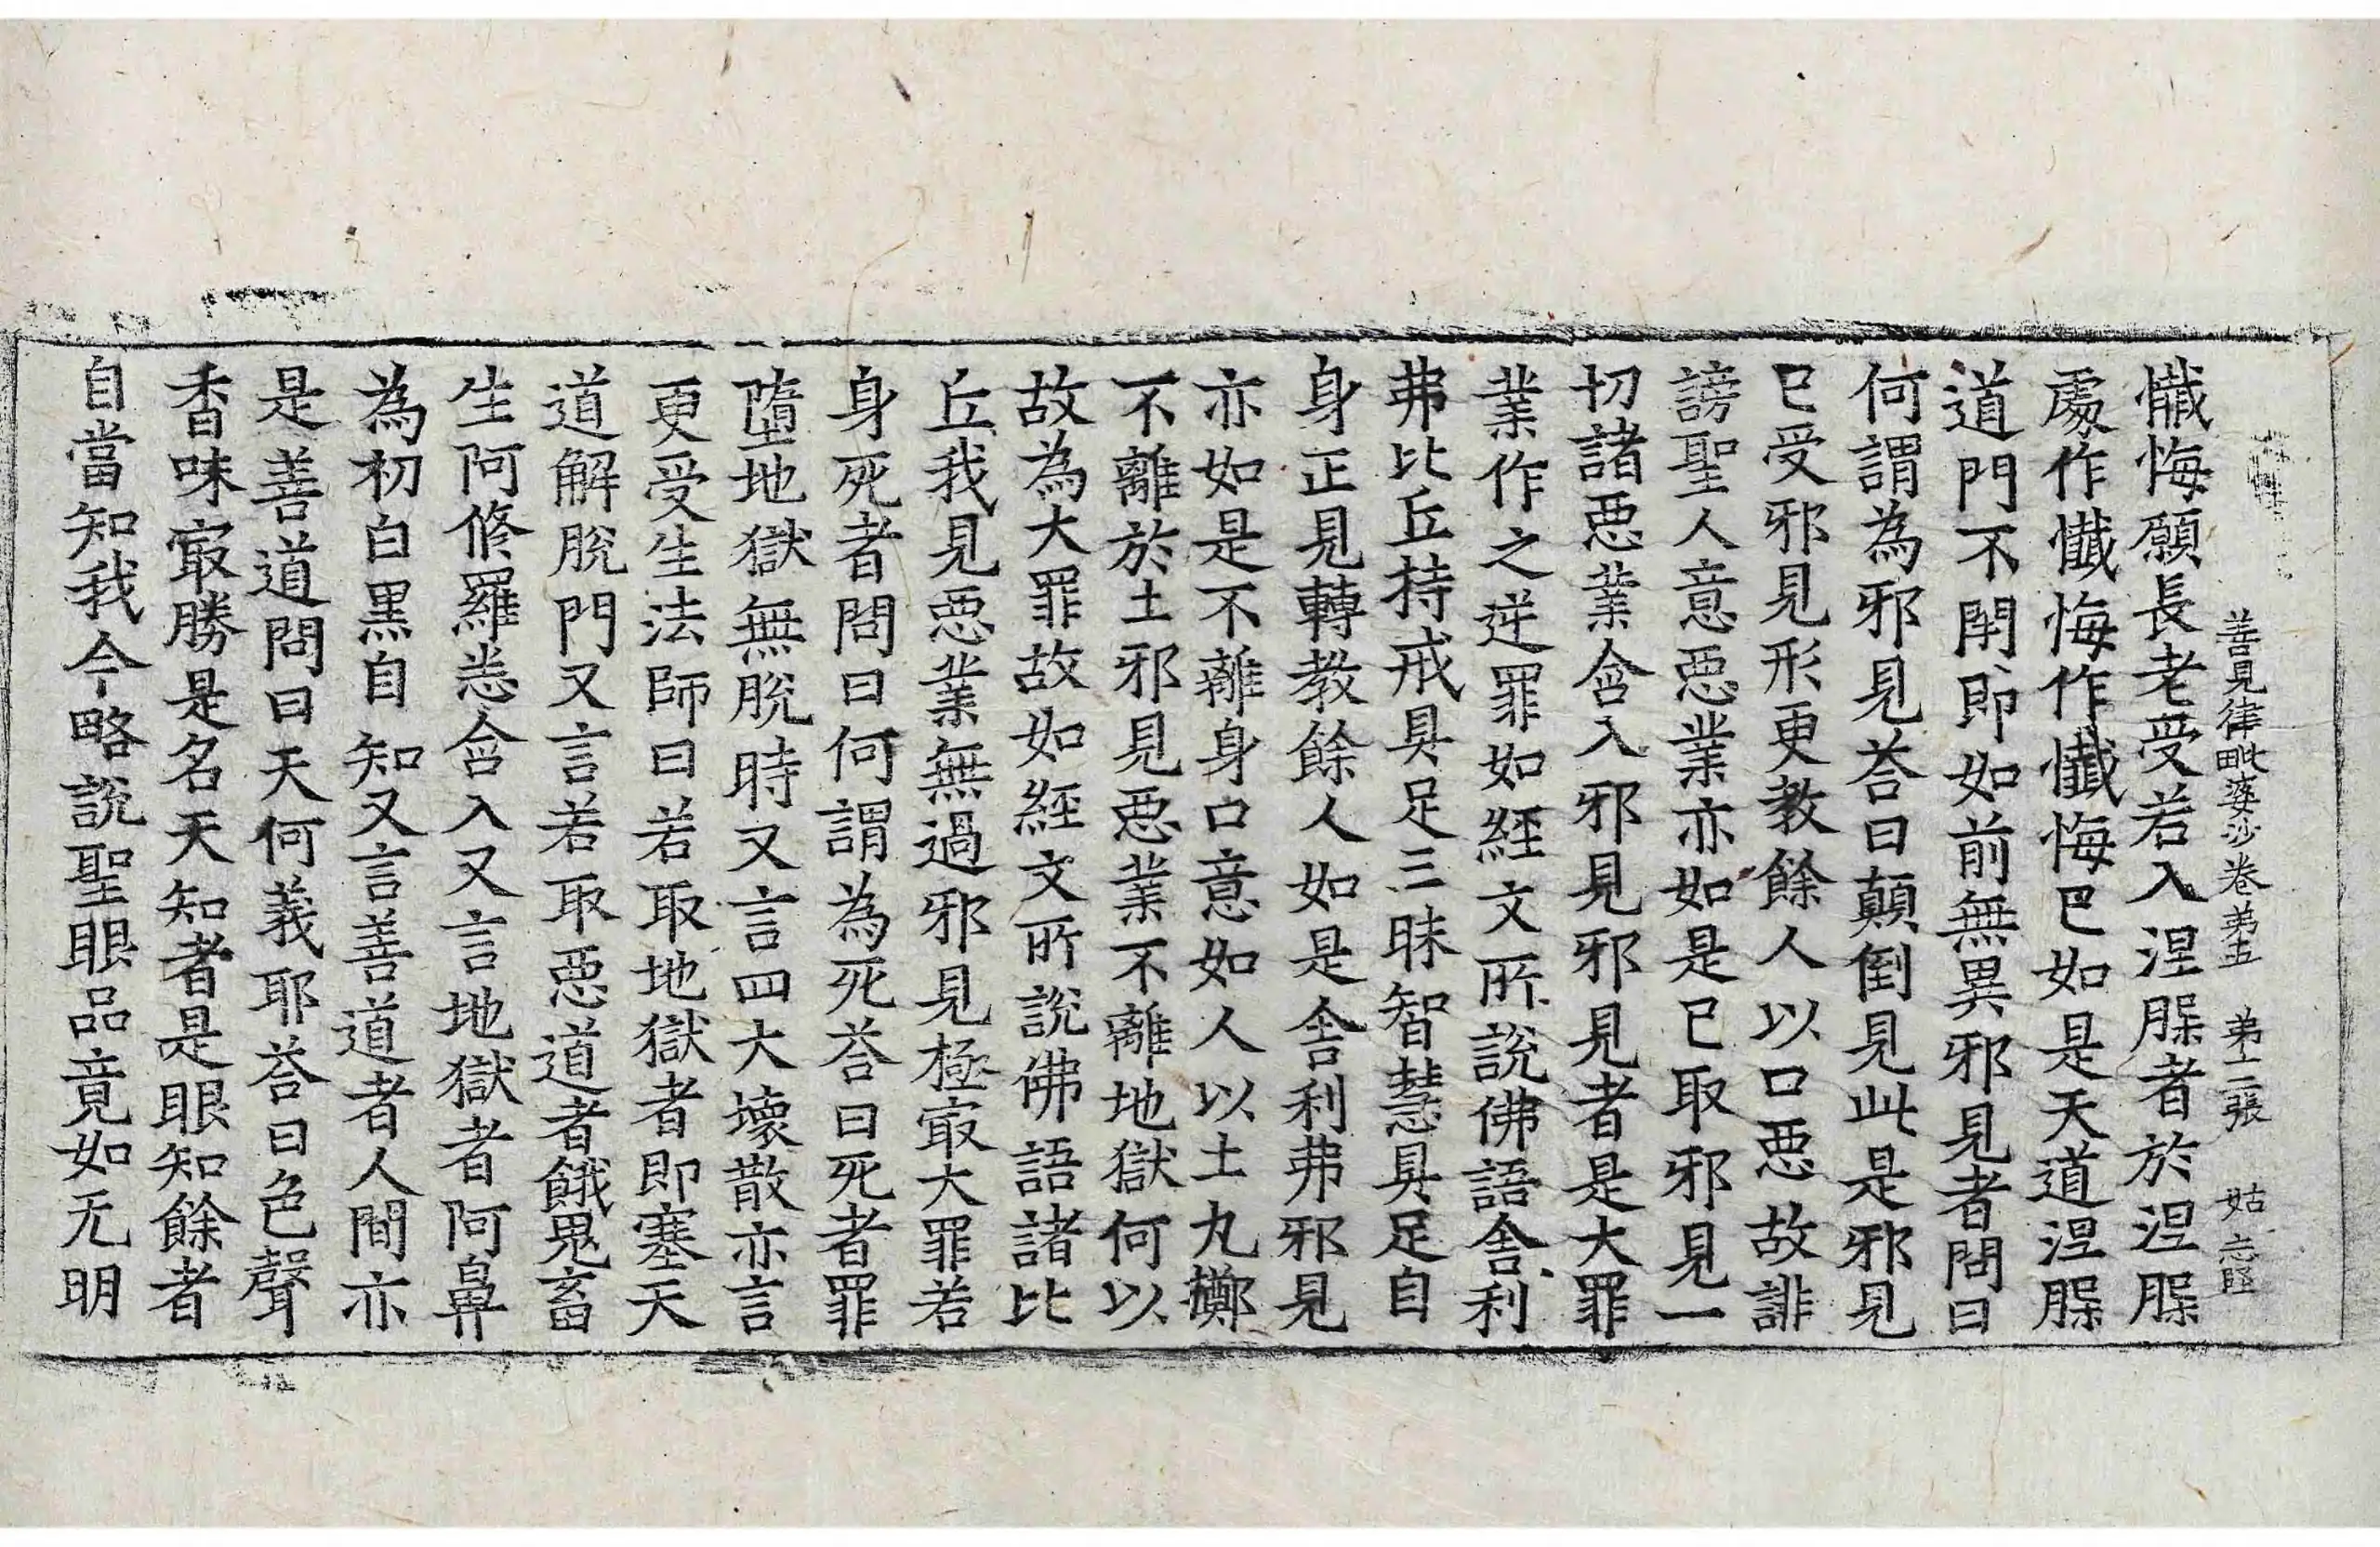 善見律毗婆沙卷弟五 弟十二張 姑
懺悔願長老受若入涅䏶者於涅䏶
處作懺悔作懺悔已如是天道涅䏶
道門不閇即如前無異邪見者問曰
何謂為邪見荅曰顛倒見此是邪見
已受邪見形更教餘人以口惡故誹
謗聖人意惡業亦如是已取邪見一
切諸惡業含入邪見邪見者是大罪
業作之逆罪如經文所說佛語舍利
弗比丘持戒具足三昧智慧具足自
身正見轉教餘人如是舍利弗邪見
亦如是不離身口意如人以土丸擲
不離於土邪見惡業不離地獄何以
故為大罪故如經文所說佛語諸比
丘我見惡業無過邪見極㝡大罪若
身死者問曰何謂為死荅曰死者罪
墮地獄無脫時又言四大壞散亦言
更受生法師曰若取地獄者即塞天
道解脫門又言若取惡道者餓鬼畜
生阿修羅悉含入又言地獄者阿鼻
為初白黒自知又言善道者人間亦
是善道問曰天何義耶荅曰色聲
香味㝡勝是名天知者是眼知餘者
自當知我今略說聖眼品竟如无明